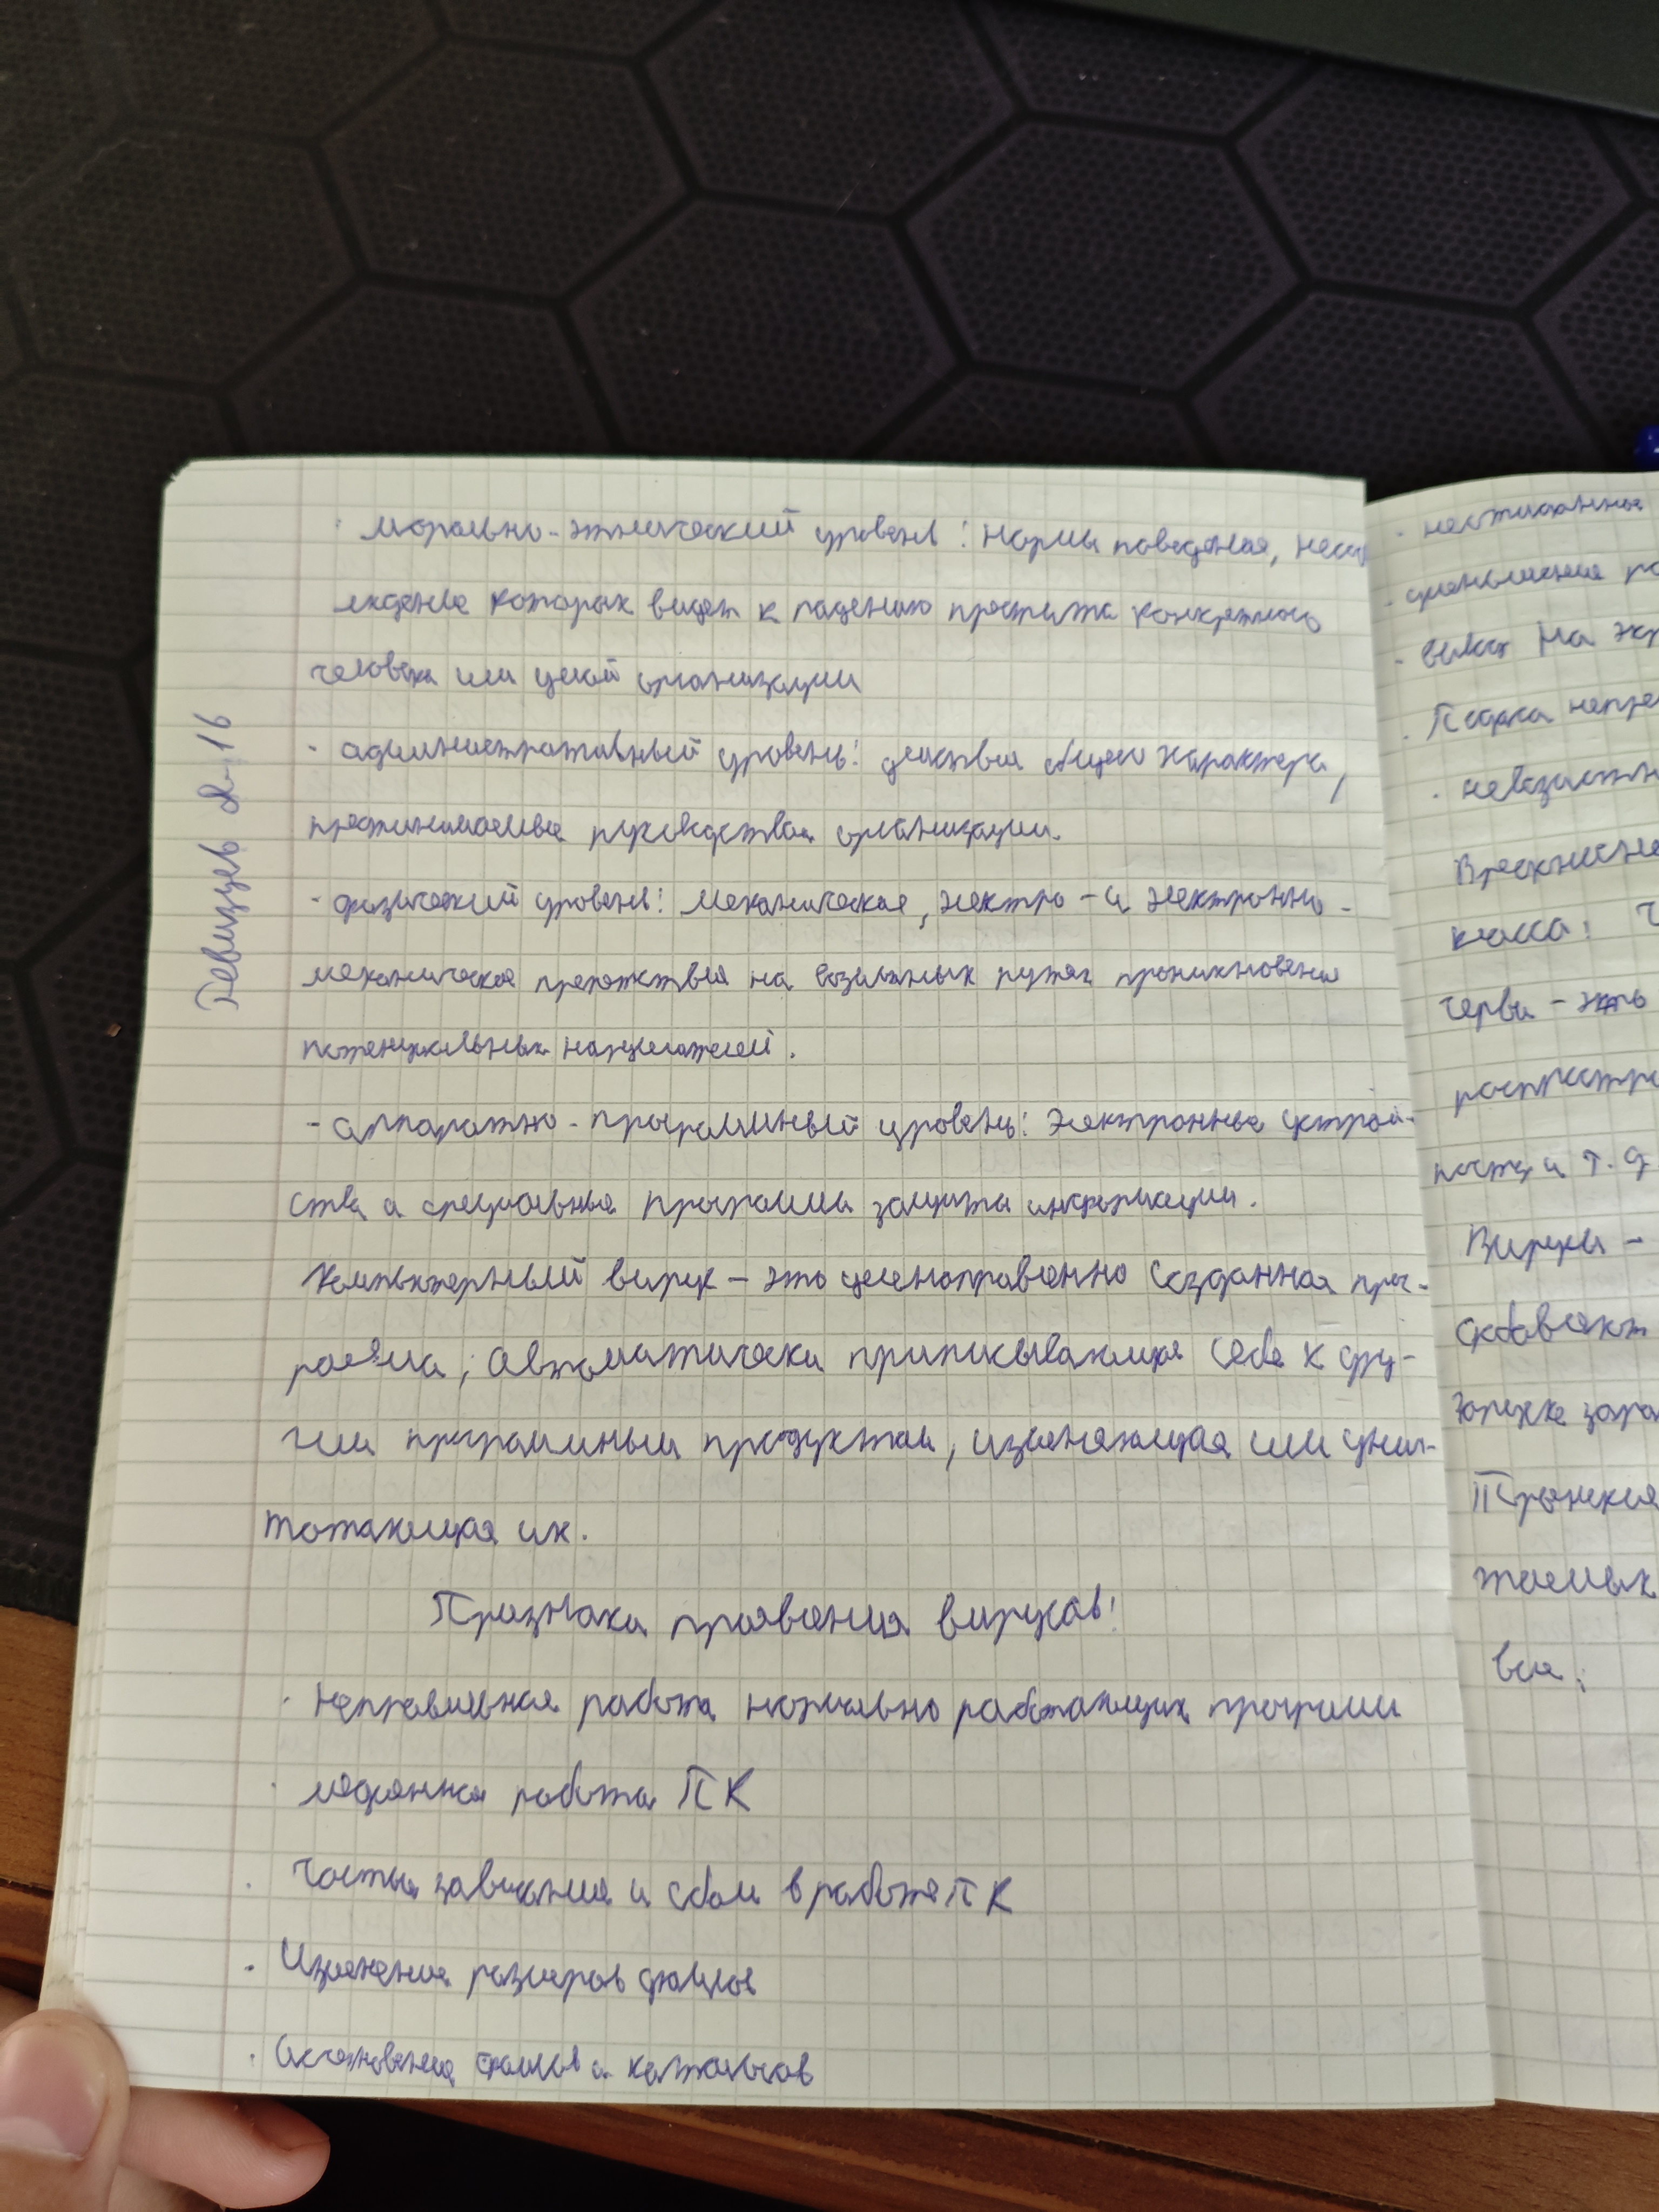 · морально-этический уровень: нормы поведения, несоб
людение которых видет к падению престижа конкретного
человека или целой организации
· административный уровень: действия общего характера,
предпринимаемые руководством организации.
· физический уровень: механические, электро- и электронно-
механические препятствия на возможных путях проникновения
потенциальных нарушителей.
- аппаратно-программный уровень: электронные устрой-
ства и специальные программы защиты информации.
Компьютерный вирус – это целенаправленно созданная прог-
рамма, автоматически приписывающая себя к дру-
гим программным продуктам, изменяющая или унич-
тожающая их.
Признаки проявления вирусов:
· Неправильная работа нормально работающих программ
· медленная работа ПК
· Частые зависания и сбои в работе ПК
· Изменение размеров файлов
· Исчезновение файлов и каталогов
Д-16
· неожиданные
· уменьшение ра
· вывод на экр
· Подача непре
· невозможн
Вредоносные
класса: Ч
Черви – это
распростра
почту и т.д
Вирусы –
запуске зара
Троянские
все.